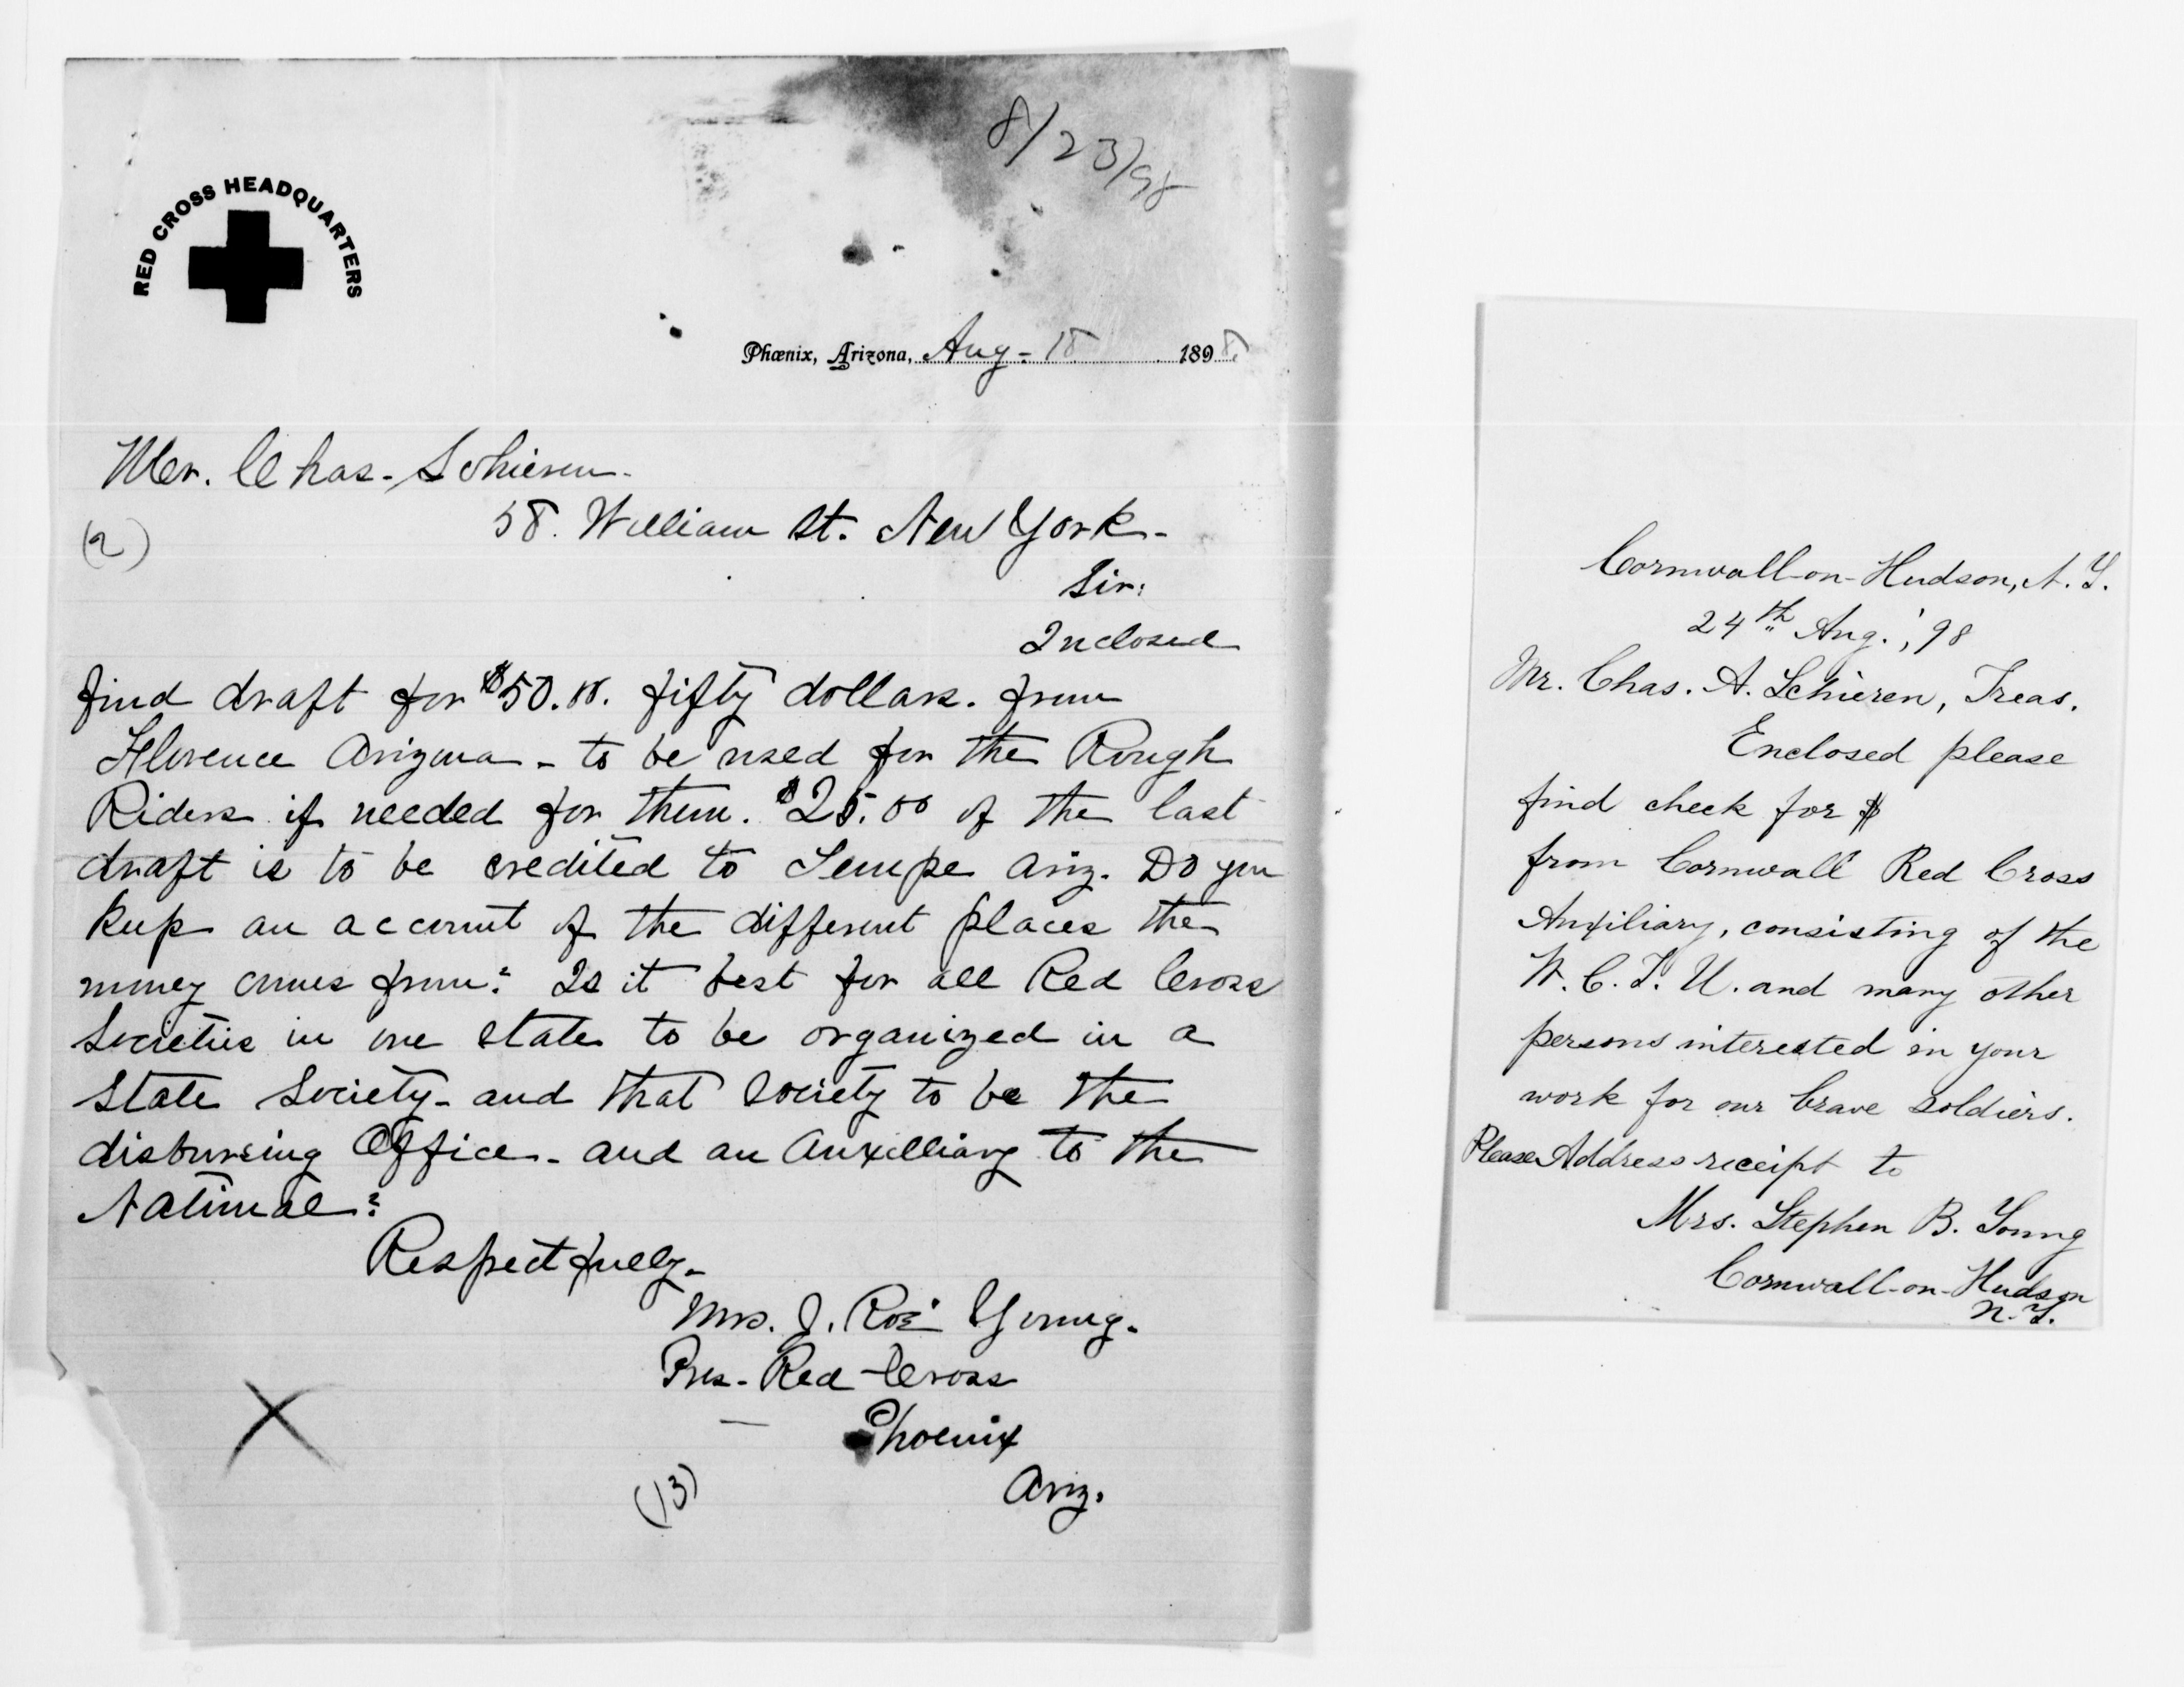 8/23/98
RED CROSS HEADQUARTERS
Phœnix, Arizona, Aug - 18 1898.
Mr. Chas. Schieren.
(2)
58. William St. New York.
Sir:
Inclosed
find draft for $50.00. fifty dollars. from
Florence Arizona - to be used for the Rough
Riders if needed for them. $25.00 of the last
draft is to be credited to Tempe Ariz. Do you
keep an account of the different places the
money comes from? Is it best for all Red Cross
Societies in one state to be organized in a
State Society - and that Society to be the
disbursing Office - and an Auxilliary to the
National?
Respectfully -
Mrs. J. Roé Young.
Pres - Red Cross
Phoenix
Ariz.
(13)
Cornwall-on-Hudson, N. Y.
24th Aug., '98
Mr. Chas. A. Schieren, Treas.
Enclosed please
find check for $
from Cornwall Red Cross
Auxiliary, consisting of the
W. C. T. U. and many other
persons interested in your
work for our brave soldiers.
Please Address receipt to
Mrs. Stephen B. Young
Cornwall-on-Hudson
N. Y.